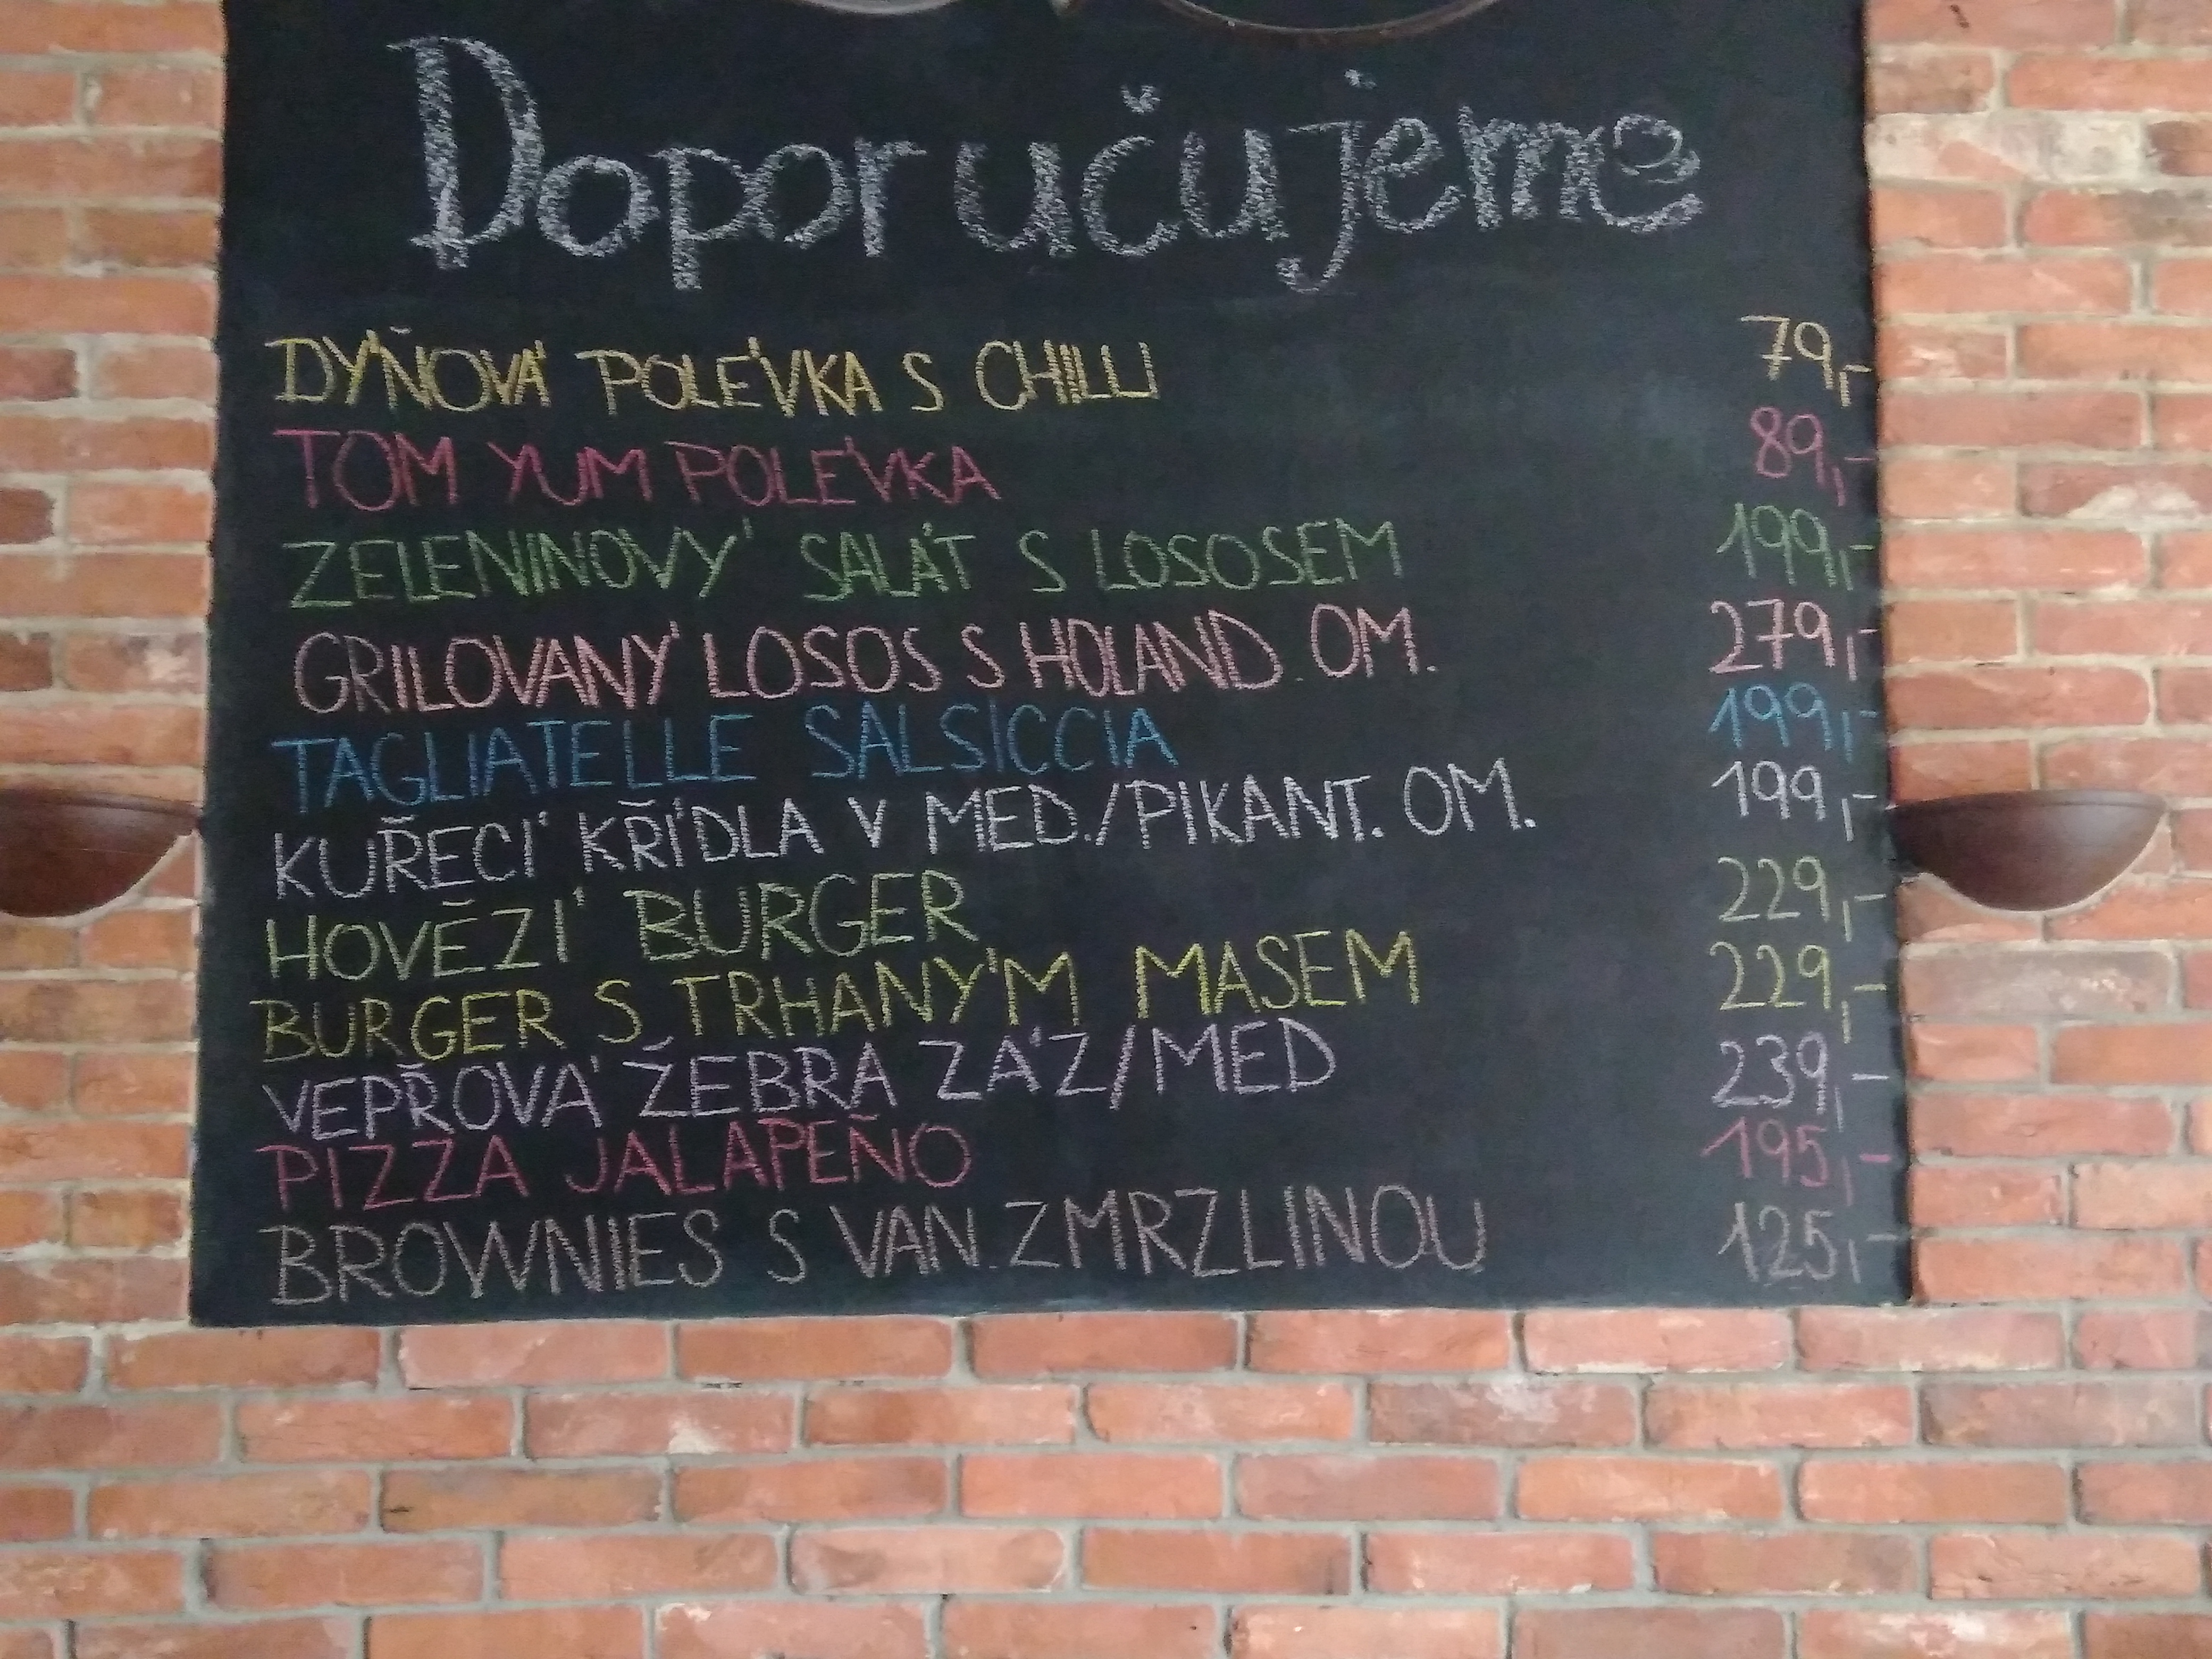 Doporučujeme
DÝŇOVÁ POLÉVKA S CHILLI 79,-
TOM YUM POLÉVKA 89,-
ZELENINOVÝ SALÁT S LOSOSEM 199,-
GRILOVANÝ LOSOS S HOLAND. OM. 279,-
TAGLIATELLE SALSICCIA 199,-
KUŘECÍ KŘÍDLA V MED./PIKANT. OM. 199,-
HOVĚZÍ BURGER 229,-
BURGER S TRHANÝM MASEM 229,-
VEPŘOVÁ ŽEBRA ZÁ'Z/MED 239,-
PIZZA JALAPEÑO 195,-
BROWNIES S VAN. ZMRZLINOU 125,-